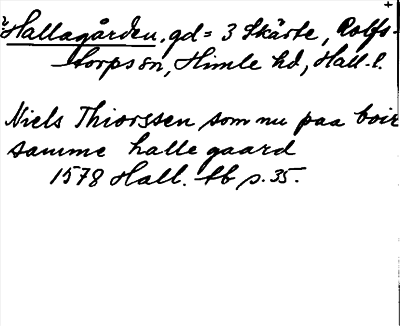 Hallagården, gd = 3 Skärte, Rolfs-
torps sn, Himle hd, Hall. l.
Niels Thiorssen som nu paa boir
samme halle gaard
1578 Hall. tb s. 35.